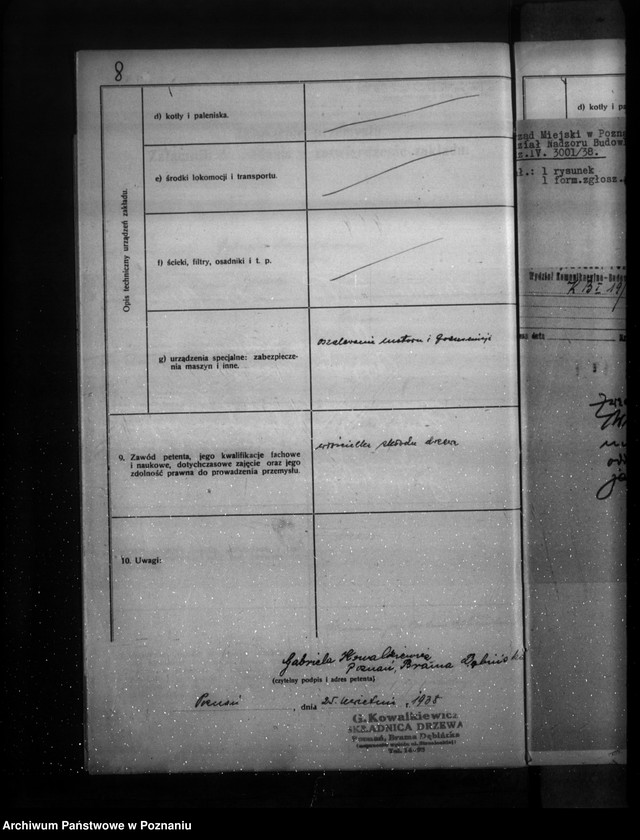 8
Opis techniczny urządzeń zakładu.
d) kotły i paleniska.
e) środki lokomocji i transportu.
f) ścieki, filtry, osadniki i t. p.
g) urządzenia specjalne: zabezpiecze-
nia maszyn i inne.
motoru i
9. Zawód petenta, jego kwalifikacje fachowe
i naukowe, dotychczasowe zajęcie oraz jego
zdolność prawna do prowadzenia przemysłu.
właścicielka składu drzewa
10. Uwagi:
Gabriela Kowalkiewicz
Poznań, Brama Dębińska
(czytelny podpis i adres petenta)
Poznań, dnia 25 kwietnia, 1938
G. Kowalkiewicz
SKŁADNICA DRZEWA
Poznań, Brama Dębińska
d) kotły i pa
ząd Miejski w Pozna
dział Nadzoru Budow
z.IV. 3001/38.
ł.: 1 rysunek
1 form.zgłosz.
Wydział Komunikacyjno-Budo
Archiwum Państwowe w Poznaniu